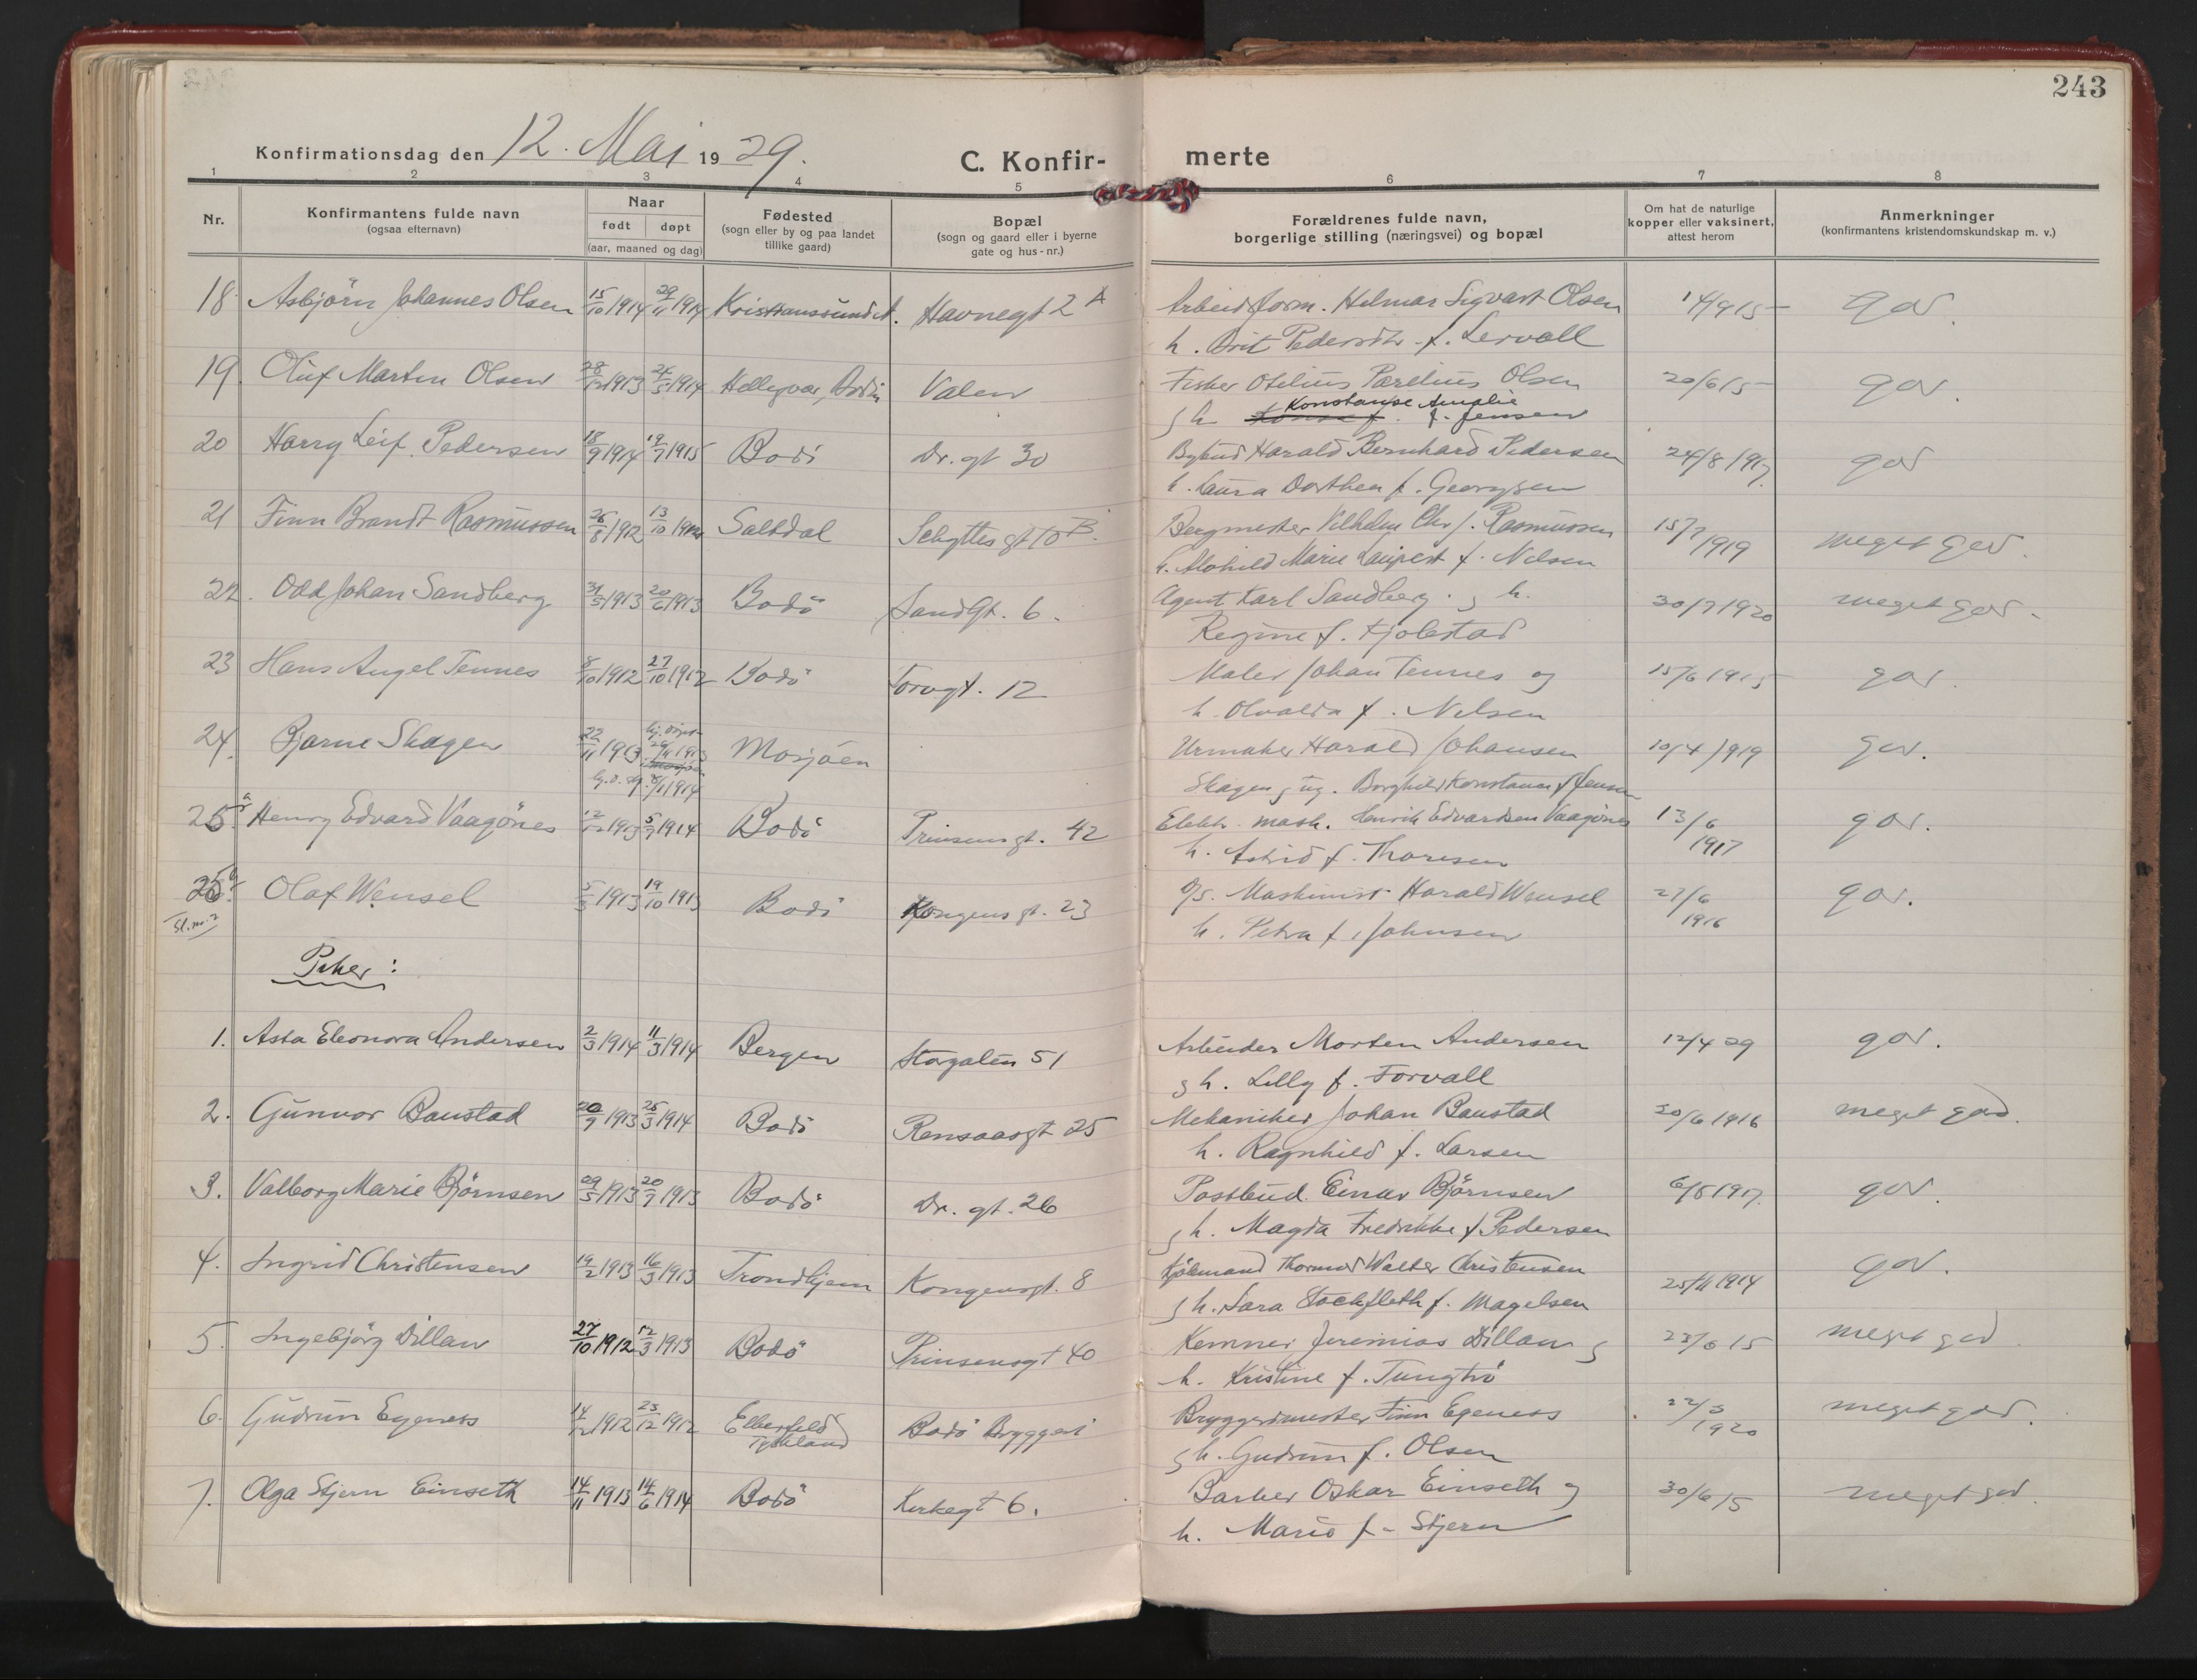 243
Konfirmationsdag den 12. Mai 1929.
C. Konfir-merte
1 2 3 4 5 6 7 8
Nr.
Konfirmantens fulde navn
(ogsaa efternavn)
Naar
født døpt
(aar, maaned og dag)
Fødested
(sogn eller by og paa landet
tillike gaard)
Bopæl
(sogn og gaard eller i byerne
gate og hus-nr.)
Forældrenes fulde navn,
borgerlige stilling (næringsvei) og bopæl
Om hat de naturlige
kopper eller vaksinert,
attest herom
Anmerkninger
(konfirmantens kristendomskundskap m. v.)
18. Asbjörn Johannes Olsen 15/10 1914 29/11 1914 Kristianssund N. Havnegt 2 A Arbeidsform. Helmar Sigvart Olsen 14/9 15 god.
h. Brit Pedersdtr f. Lervoll
19. Oluf Martin Olsen 28/12 1913 24/5 1914 Helligvær, Bodin Valen Fisker Otelius Parelius Olsen 20/6 15 god.
g h Konstanse Amalie f. Jensen
20 Harry Leif Pedersen 18/9 1914 19/7 1915 Bodö Dr. gt 30 Bybud Harald Bernhard Pedersen 24/8 1917. god
h. Laura Dorthea f. Georgsen
21 Finn Brandt Rasmussen 26/8 1912 13/10 1912 Saltdal Schyttes gt 10 B. Bergmester Vilhelm Chr. f. Rasmussen 15/7 1919 meget god.
h. Marie f. Nilsen
22. Odd Johan Sandberg 31/3 1913 20/6 1913 Bodö Sandgt. 6. Agent Karl Sandberg g h. 30/7 1920 meget god.
Regine f. Fjolestad
23 Hans Angel Tennes 8/10 1912 27/10 1912 Bodö Torvgt. 12 Maler Johan Tennes og 15/6 1915 god.
h. Olvalda f. Nilsen
24. Bjarne Skagen 22/11 1913 29/11 1913 Mosjöen Urmaker Harald Johansen 10/4 1919 god.
1914 Skagen g ug. Borghild Konstanse f Jensen
25 a Henry Edvard Vaagönes 12/12 1913 5/7 1914 Bodö Prinsensgt. 42 Elektr. mask. Henrik Edvardsen Vaagönes 13/6 1917 god.
h. Astrid f. Thoresen
25 b Olaf Wensel 5/5 1913 19/10 1913 Bodö Kongensgt. 23 D/S. Maskinist Harald Wensel 27/6 1916 god.
h. Petra f. Johnsen
Piker:
1. Asta Eleonora Andersen 2/3 1914 11/3 1914 Bergen Storgaten 51 Arbeider Morten Andersen 12/4 29 god.
g h. Lilly f. Forvall
2. Gunvor Baustad 20/9 1913 25/3 1914 Bodö Rensaasgt 25 Mekaniker Johan Baustad 30/6 1916 meget god.
h. Ragnhild f. Larsen
3. Valborg Marie Björnsen 29/5 1913 20/9 1913 Bodö Dr. gt. 26 Postbud Einar Björnsen 6/8 1917. god.
g h. Magda Fredrikke f Pedersen
4. Ingrid Christensen 19/2 1913 16/3 1913 Trondhjem Kongensgt. 8 Sjömand Thormod Walter Christensen 25/11 1914 god.
g h. Sara Stockfleth f. Magelsen
5. Ingebjörg Dillan 27/10 1912 12/3 1913 Bodö Prinsensgt 40 Kemner Jeremias Dillan g 23/6 15 meget god
h. Kristine f. Tungtrö
6. Gudrun Egeness 14/12 1912 23/12 1912 Elberfeld Tyskland Bodö Bryggeri Bryggerimester Finn Egeness 22/3 1920 meget god.
g h. Gudrun f. Olsen
7. Olga Stjern Einseth 14/11 1913 14/6 1914 Bodö Kirkegt 6. Barber Oskar Einseth og 30/6 15 meget god.
h. Marie f. Stjern